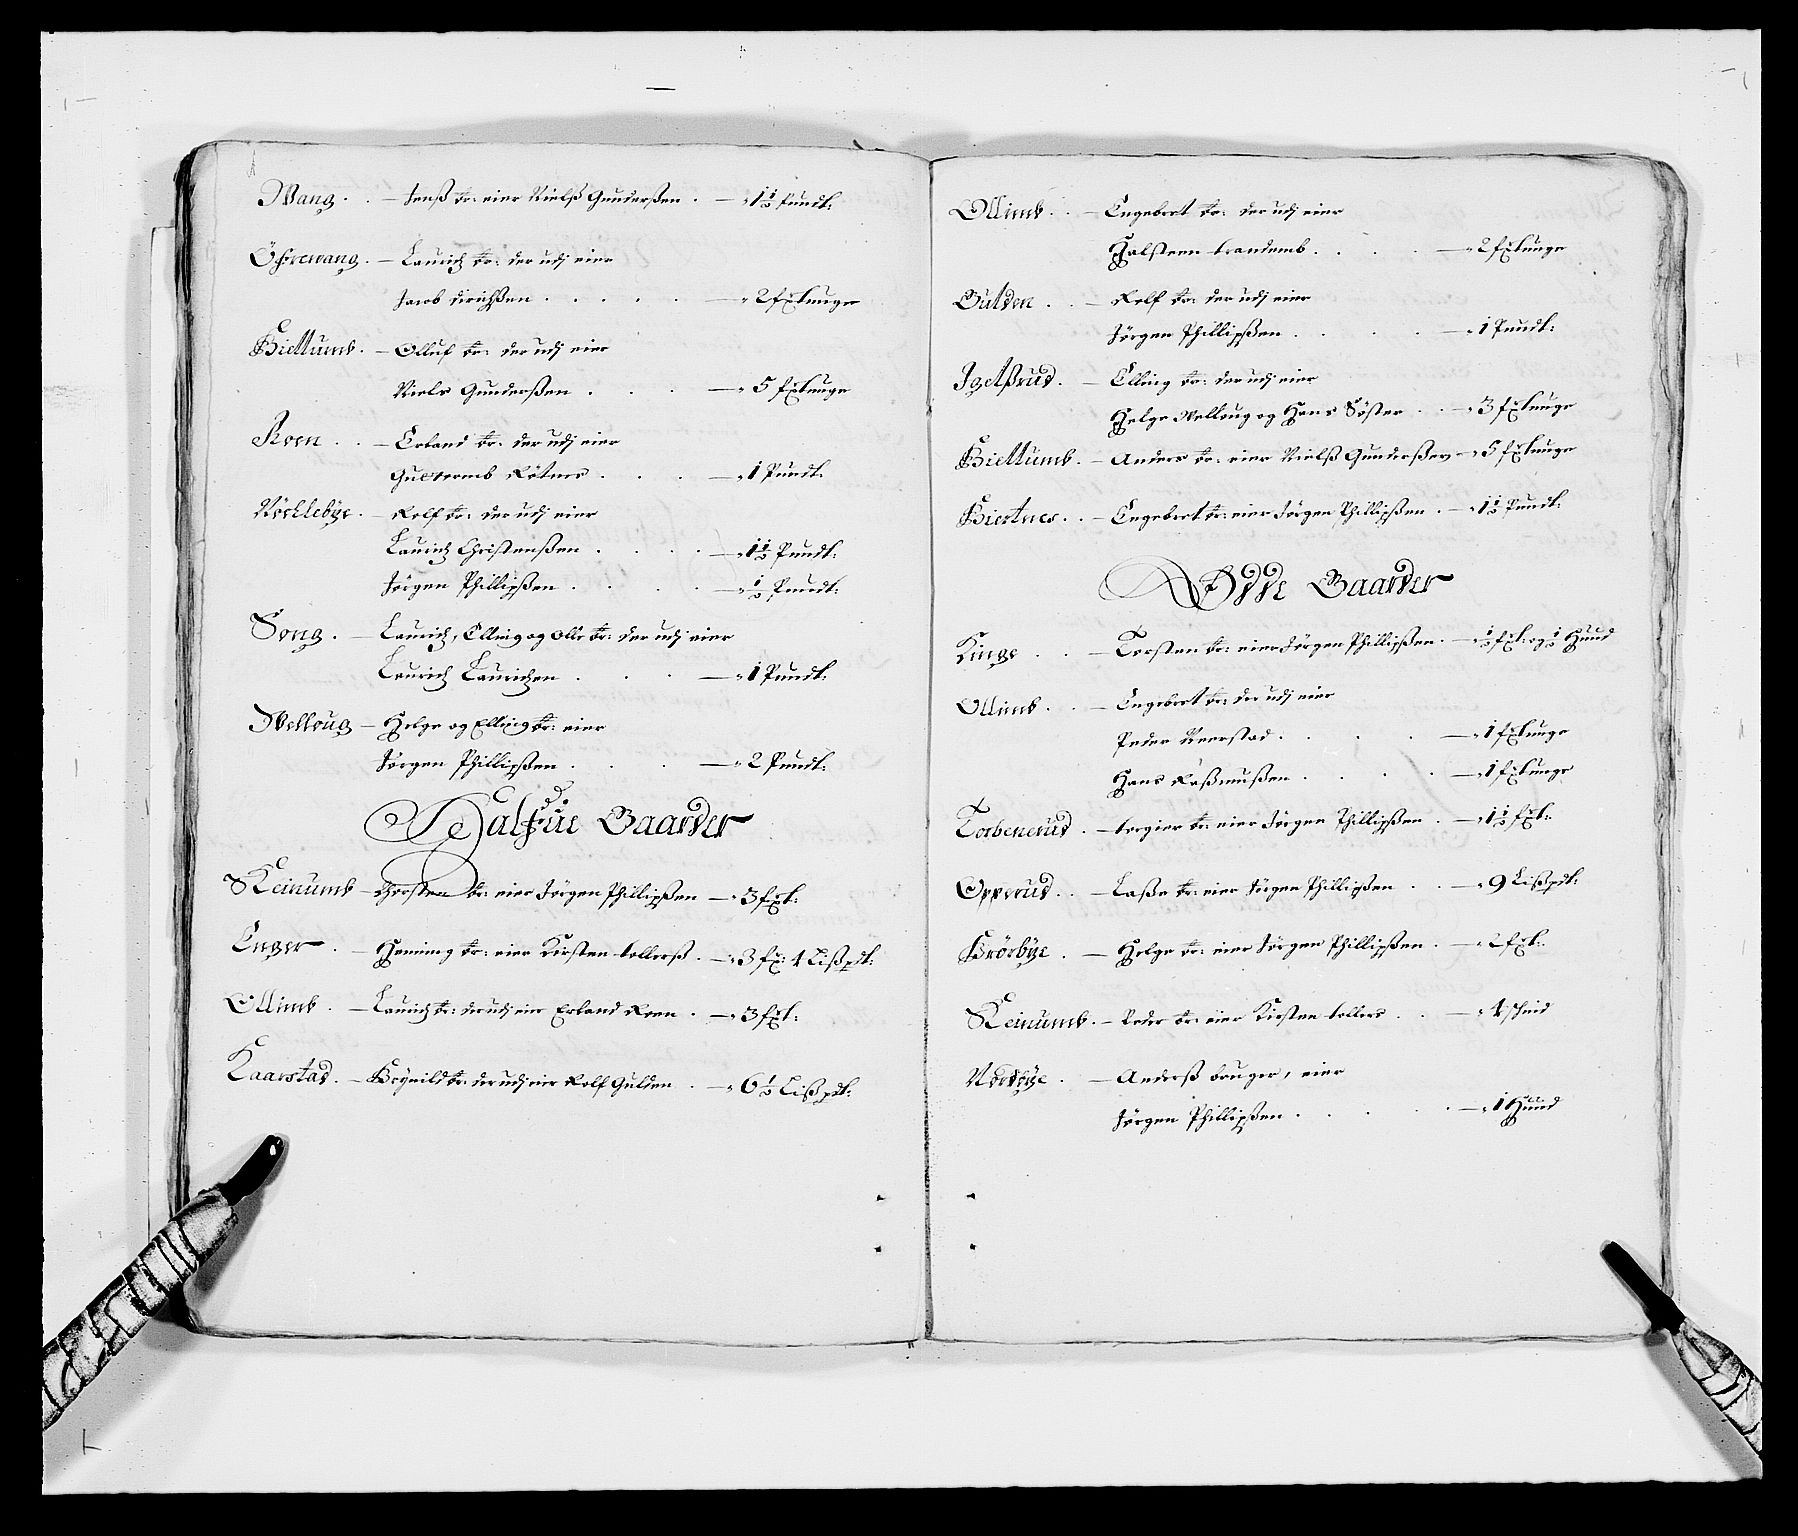 Wang . . – Jenß br: eier Nielß Gunderßen . – 1½ Pundt:
Öfrewang . – Laurich br: der udj eier
Jacob dirichßen . . . . . – 2 fixlunge
Hiellumb . – Olluf br: der udj eier
Niels Gunderßen . . . – 5 fixlunge
Roen . . – Erland br: der udj eier
Gulbrand Rötnes . . . – 1 Pundt:
Nöchlebye . – Rolf br: der udj eier
Laurich Christenßen . . . . – 1½ Pundt:
Jörgen Phillipßen . . . . – ½ Pundt:
Song . – Laurich, Elling og Olle br: der udj eier
Laurich Laurichen . . . . – 1 Pundt:
Welloug – Helge og Elling br: eier
Jörgen Phillipßen . . . . – 2 Pundt:
Halfue Gaarder
Kleinumb – Thorsten br: eier Jörgen Phillipßen – 3 fxl:
Enger . – Heming br: eier Kirsten tollerß . – 3 fx: 4 Lißpdt:
Ollimb . – Laurich br: der udj eier Erland Roen . – 3 fxl:
Kaarstad . – Brynild br: der udj eier Rolf Gulden . – 6½ Lißpdt:
Ollimb . . – Engebret br: der udj eier
Halsteen brandemb . . . . – 2 fixlunge
Gulden . . – Rolf br: der udj eier
Jörgen Phillipßen . . . . – 1 Pundt:
Igelßrud . – Elling br: der udj eier
Helge Welloug og Hans Söster . . – 3 fixlunge
Hiellumb . – Anders br: eier Nielß Gunderßen – 5 fixlunge
Hiertnes . . – Engebret br: eier Jörgen Phillipßen . – 1½ Pundt:
Ödde Gaarder
Kinge . . – Torsten br: eier Jörgen Phillipßen . – ½ fxl: og ½ Huud
Ollimb . . – Engebret br: der udj eier
Peder Neerstad . . . . – 1 fixlunge
Hans Raßmußen . . . . – 1 fixlunge
Torbenerud . – torgier br: eier Jörgen Phillipßen . – 1½ fxl:
Opperud . . – Laße br: eier Jörgen Phillipßen . . – 9 Lißpdt:
Brörbye . – Helge br: eier Jörgen Phillipßen . – 2 fxl:
Kleinumb . – Peder br: eier Kirsten tollers . . – 4 schind
Nordbye . – Anderß bruger, eier
Jörgen Phillipßen . . . . . – 1 Huud